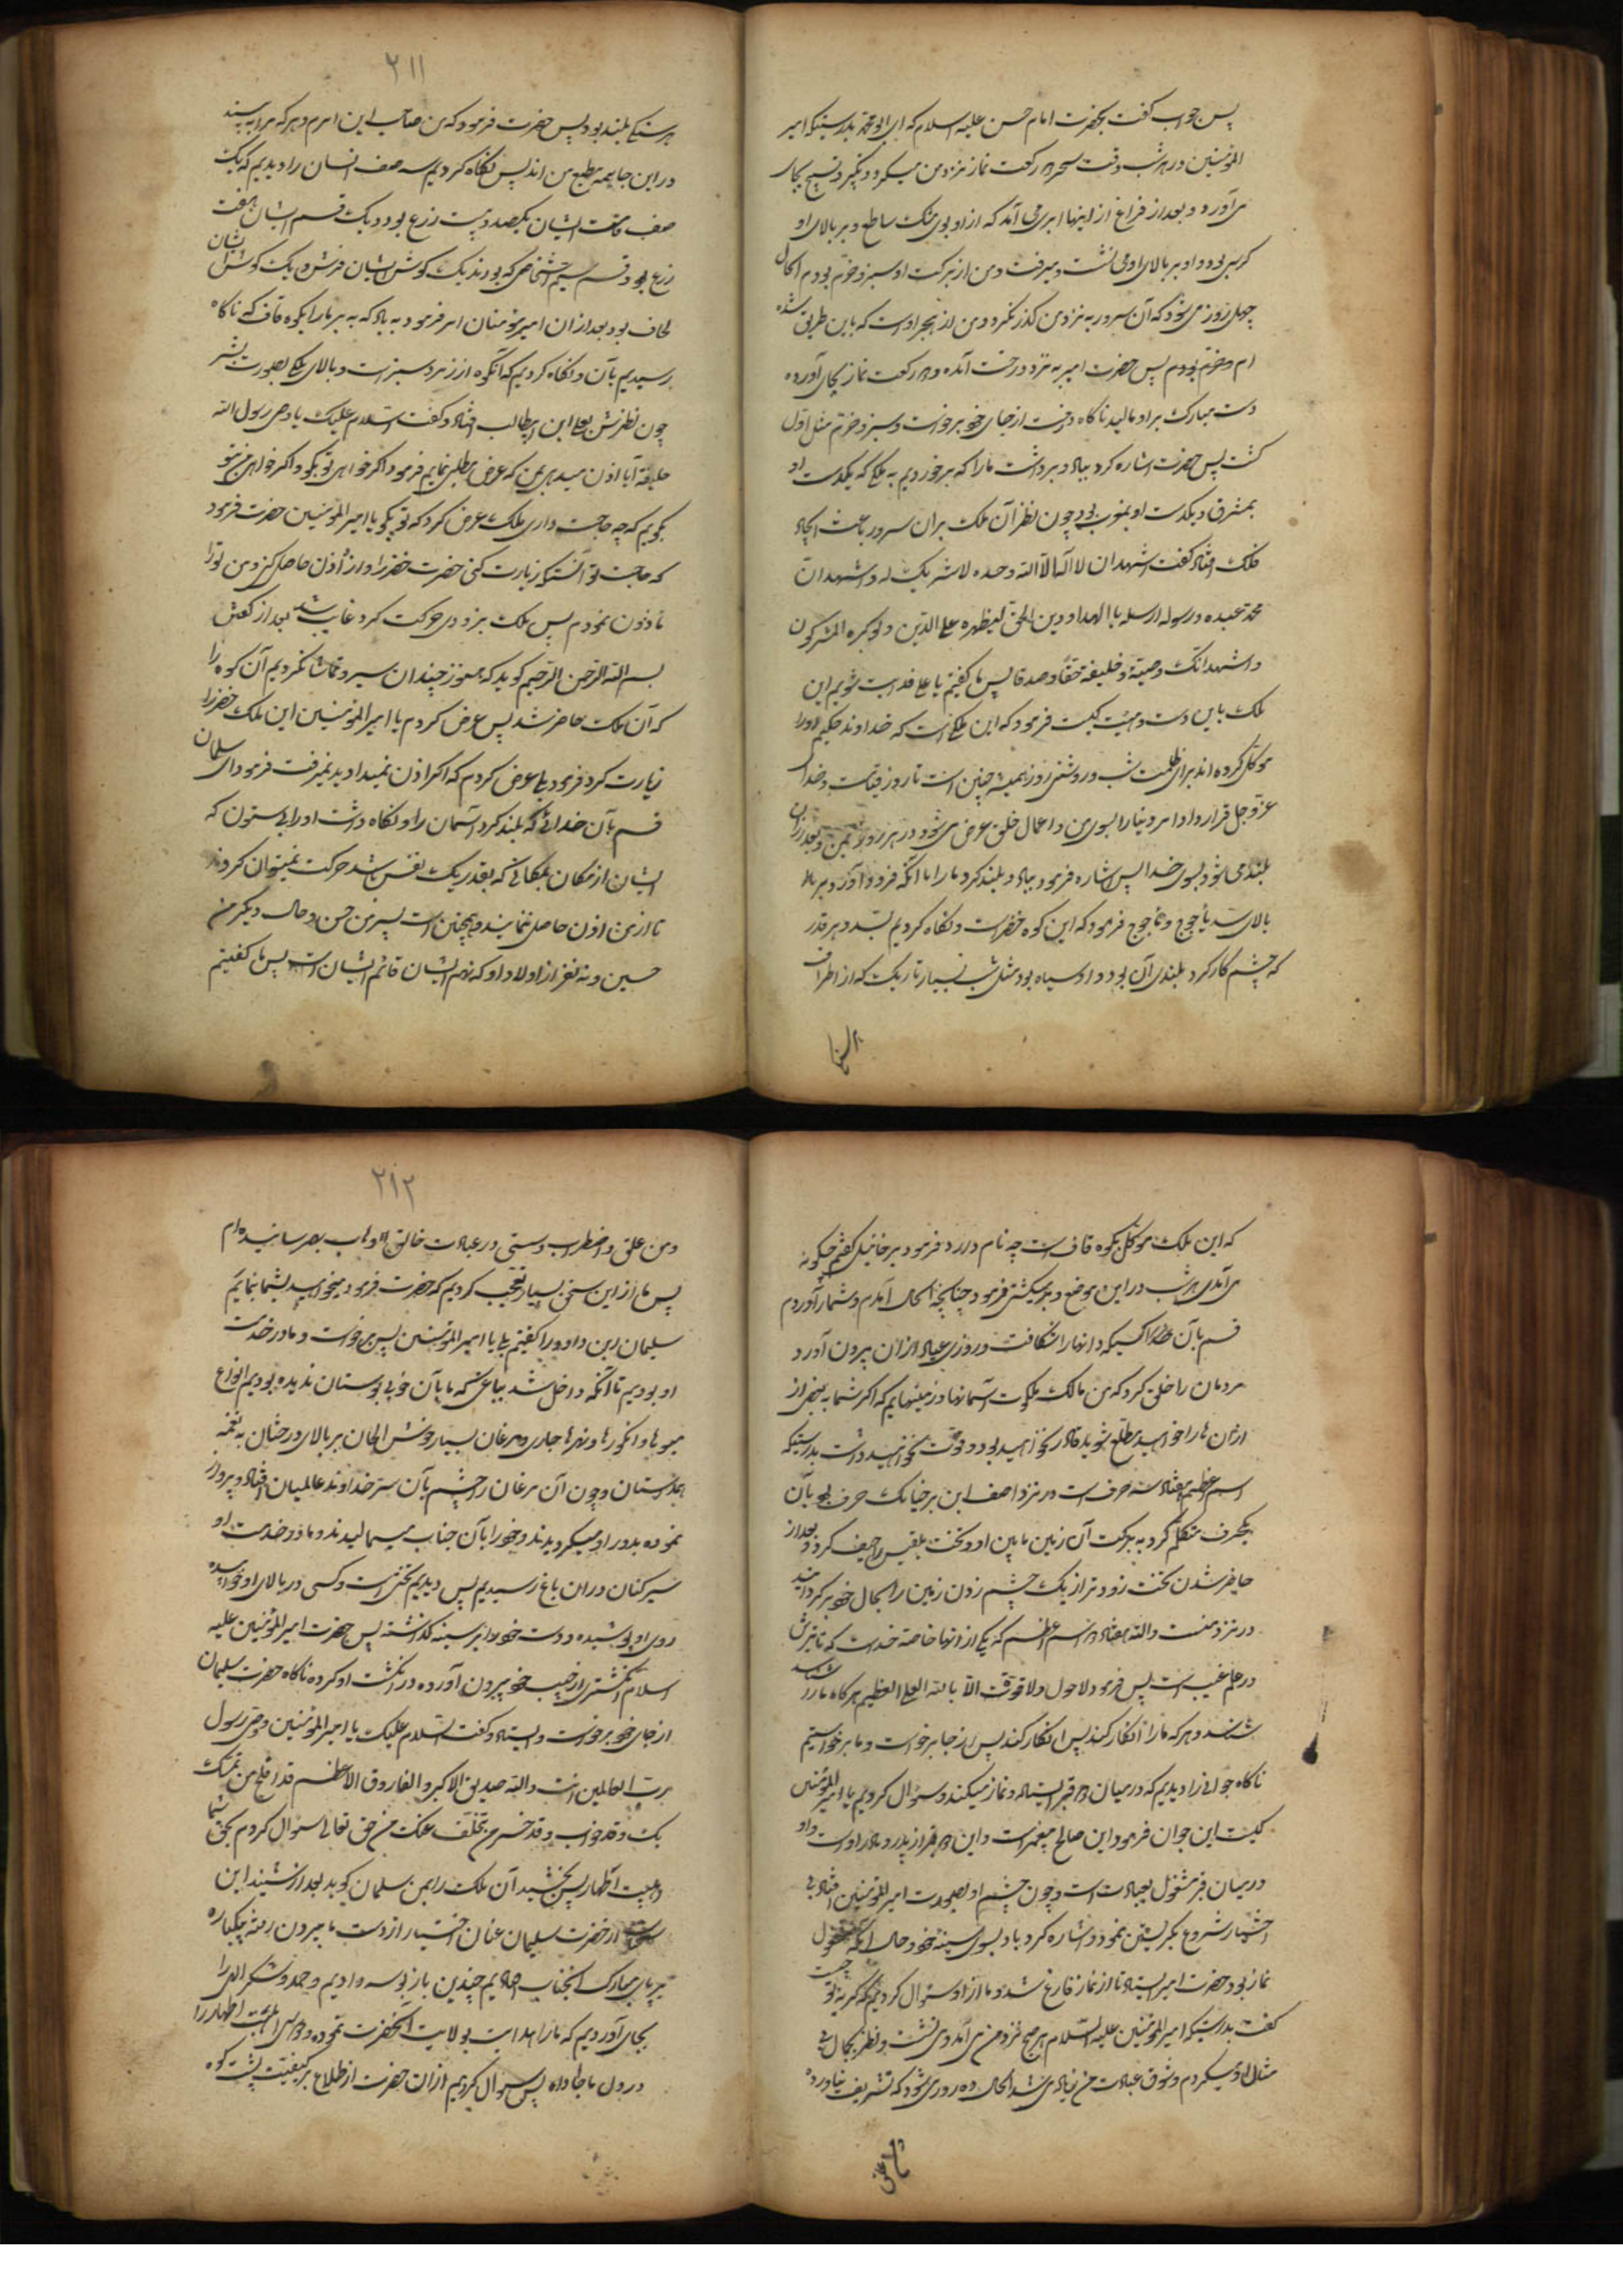 پس جواب گفت بحضرت امام حسن علیه السلام که ای ابو محمد بدرستیکه امیر
المؤمنین در هر شب وقت سحر دو رکعت نماز نزد من میکرد و تکبیر و تسبیح بجای
می آورد و بعد از فراغ از اینها ابری می آمد که از او بوی مشک ساطع و بر بالای او
کرسی بود و او بر بالای او می نشست و میرفت و من از برکت او سبز و خرم بودم الحال
چهل روز می شود که آن سرور به نزد من گذر نکرده و من از هجر اوست که باین طریق شده
ام و خرم بودم پس حضرت امیر به نزد درخت آمده و دو رکعت نماز بجای آورده
دست مبارک بر او مالید ناکاه درخت از جای خود برخواست و سبز و خرم مثل اول
گشت پس حضرت اشاره کرد بباد و برداشت ما را که برخوردیم به ملکی که یکدست او
بمشرق و یکدست او بمغرب بود چون نظر آن ملک بر آن سرور باعث ایجاد
فلک افتاد گفت اشهد ان لا اله الا الله وحده لا شریک له و اشهد ان
محمد عبده و رسوله ارسله بالهدا و دین الحق لیظهره علی الدین و لو کره المشرکون
و اشهد انک وصیه و خلیفه حقا و صدقا پس ما گفتیم یا علی فدایت شویم این
ملک باین دست و هیئت کیست فرمود که این ملکی است که خداوند حکیم او را
موکل کرده اند برای ظلمت شب و روشنی روز همیشه چنین است تا روز قیامت و خدای
عز و جل قرار داد امر دنیا را بسوی من و اعمال خلق عرض می شود در هر روز بمن و بعد از آن
بلند می شود بسوی خدا پس اشاره فرمود بباد و بلند کرد ما را تا آنکه فرود آورد بر ما
بالای سد یأجوج و مأجوج فرمود که این کوه خضر است و نکاه کردیم بسد و هر قدر
که چشم کار کرد بلندی آن بود و او سیاه بود مثل شب بسیار تاریک که از اطراف
٢١١
هر سنکی بلند بود پس حضرت فرمود که من صاحب این امرم و هر که هر آیه بیند
در این جا همه مطیع من اند پس نکاه کردیم سه صف انسان را دیدیم که یک
صف قامت ایشان یکصد و بیست زرع بود و یک قسم ایشان هفت
زرع بود و قسم سیم اشخاصی که بودند یک کوش ایشان فرش و یک کوش ایشان
لحاف بود بعد از ان امیر مؤمنان امر فرمود به باد که به بر ما را بکوه قاف که ناکاه
رسیدیم بآن و نکاه کردیم که آنکوه از زمرد سبز است و بالای ملکی بصورت بشر
چون نظرش بعلی ابن ابیطالب افتاد و گفت السلام علیک یا وصی رسول الله
خلیفته آیا اذن میدهی بمن که عرض مطلبی نمایم فرمود اکر خواهی تو بگو و اکر خواهی من بتو
بگویم که چه حاجت داری ملک عرض کرد که تو بگو یا امیر المؤمنین حضرت فرمود
که حاجت تو آنستکه زیارت کنی حضرت خضر را و از من اذن حاصل کنی و من ترا
ماذون نمودم پس ملک بزودی حرکت کرد غایب شد بعد از گفتن
بسم الله الرحمن الرحیم کوید که هنوز چندان سیر و تماشا نکردیم آن کوه را
که آن ملک حاضر شد پس عرض کردم یا امیر المؤمنین این ملک خضر را
زیارت کرد فرمود بلی عرض کردم که اکر اذن نمیدادید نمیرفت فرمود ای سلمان
قسم بآن خدائی که بلند کرد آسمان را و نکاه داشت او را بی ستون که
ایشان از مکان بمکانی که بقدر یک نفس باشد حرکت نمیتوان کردند
تا از من اذن حاصل ننمایند و همچنین است پسر من حسن و حال دیگر من
حسین و نه نفر از اولاد او که نهم ایشان قائم ایشان است پس ما گفتیم
که این ملک موکل بکوه قاف است چه نام دارد فرمود برخائیل گفتم چگونه
می آمدی هر شب در این موضع و بر میکشتی فرمود چنانچه الحال آمدم و شما را آوردم
قسم بآن کسیکه دانها را شکافت و روزی عباد از ان بیرون آورد
مردمان را خلق کرد که من مالک ملکوت آسمانها و زمینهایم که اکر شما به بعضی از
ارثان ما را خواهید مطلع شوید قادر نخواهید بود و قوت نخواهید داشت بدرستیکه
اسم عظیم هفتاد سه حرف است در نزد اصف ابن برخیا یک حرف بود بآن
یکحرف متکلم کرد به برکت آن زمین مابین او و تخت بلقیس را خسف کرد و بعد از
حاضر شدن تخت زودتر از یک چشم زدن زمین را بحال خود برگردانید
در نزد منست والله هفتاد دو اسم اعظم که یکی از انها خاصه خداست که تأثیرش
در علم غیب است پس فرمود لا حول و لا قوة الا بالله العلی العظیم هرکاه ما را شناسد
شناسد و هر که ما را انکار کند پس انکار کند پس از جا برخواست و ما برخواستیم
ناکاه جوانی را دیدیم که در میان دو قبر ایستاده و نماز میکند و سؤال کردیم یا امیر المؤمنین
کیست این جوان فرمود این صالح پیغمبر است و این دو قبر از پدر و مادر اوست و او
در میان قبر مشغول بعبادت است و چون چشم او بصورت امیر المؤمنین افتاد بی
اختیار شروع بگریستن نمود و اشاره کرد با دو بسوی سینه خود و حال آنکه مشغول
نماز بود حضرت امیر ایستاد تا از نماز فارغ شد و ما از او سؤال کردیم که گریه تو چیست
گفت بدرستیکه امیر المؤمنین علیه السلام هر صبح نزد من می آمد و می نشست و نظر بجمال بی
مثال او میکردم و شوق عبادت من زیاد می شد الحال ده روز می شود که تشریف نیاورده
٢١٢
و من علق و اضطراب و سستی در عبادت خالق الوهاب بهم رسانیده ام
پس ما از این سخن بسیار تعجب کردیم که حضرت فرمود میخواهید بشما بنمایم
سلیمان بن داوود را گفتیم بلی یا امیر المؤمنین پس برخواست و ما در خدمت
او بودیم تا آنکه داخل شد بباغی که ما بآن خوبی بوستان ندیده بودیم انواع
میوها و انکورها و نهرها جاری و مرغان بسیار خوش الحان بر بالای درختان به نغمه
همداستان و چون آن مرغان را چشم بآن سر خداوند عالمیان افتاد و پرواز
نموده بدور او میگردیدند و خود را بآن جناب میمالیدند و ما در خدمت او
سیر کنان در ان باغ رسیدیم پس دیدیم تختی است و کسی در بالای او خوابیده
روی او پوشیده و دست خود را بر سینه گذاشته پس حضرت امیر المؤمنین علیه
السلام انکشتری از جیب خود بیرون آورده در انکشت او کرده ناکاه حضرت سلیمان
از جای خود برخواست و ایستاد و گفت السلام علیک یا امیر المؤمنین وصی رسول
رب العالمین انت والله صدیق الاکبر و الفاروق الاعظم قد افلح من تمسک
بک و قد خاب و قد خسر من تخلف عنک من حق تعالی سؤال کردم بحق شما
اهلبیت اطهار پس بخشید آن ملک را بمن سلمان کوید بعد از شنید این
از حضرت سلیمان عنان اختیار از دست ما بیرون رفته یکباره
بر پای مبارک آنجناب افتادیم چندین بار بوسه دادیم و حمد و شکر الهی را
بجای آوردیم که ما را هدایت بولایت آنحضرت نموده و دوستی اهلبیت اطهار را
در دل ما جا داده پس سؤال کردیم از ان حضرت از اطلاع بر کیفیت پشت کوه